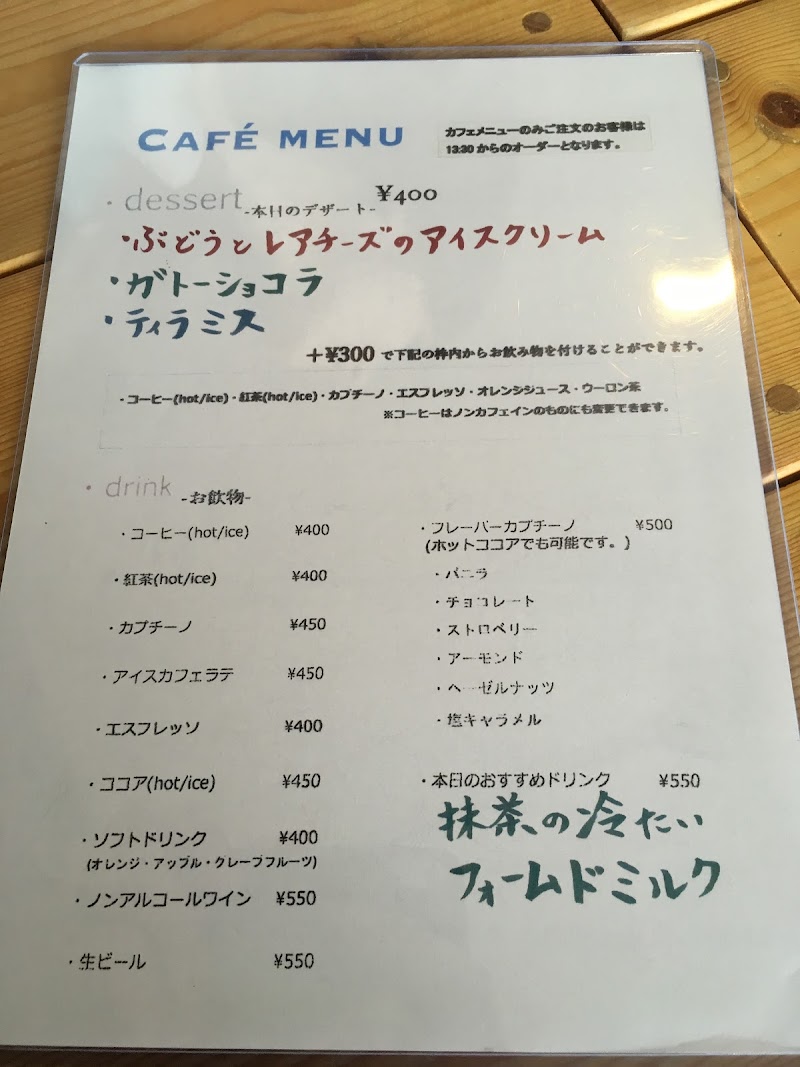 CAFÉ MENU
カフェメニューのみご注文のお客様は
13:30からのオーダーとなります。
・dessert -本日のデザート- ¥400
・ぶどうとレアチーズのアイスクリーム
・ガトーショコラ
・ティラミス
+¥300 で下記の枠内からお飲み物を付けることができます。
・コーヒー(hot/ice)・紅茶(hot/ice)・カプチーノ・エスプレッソ・オレンジジュース・ウーロン茶
※コーヒーはノンカフェインのものにも変更できます。
・drink -お飲物-
・コーヒー(hot/ice) ¥400
・紅茶(hot/ice) ¥400
・カプチーノ ¥450
・アイスカフェラテ ¥450
・エスプレッソ ¥400
・ココア(hot/ice) ¥450
・ソフトドリンク ¥400
(オレンジ・アップル・グレープフルーツ)
・ノンアルコールワイン ¥550
・生ビール ¥550
・フレーバーカプチーノ ¥500
(ホットココアでも可能です。)
・バニラ
・チョコレート
・ストロベリー
・アーモンド
・ヘーゼルナッツ
・塩キャラメル
・本日のおすすめドリンク ¥550
抹茶の冷たい
フォームドミルク